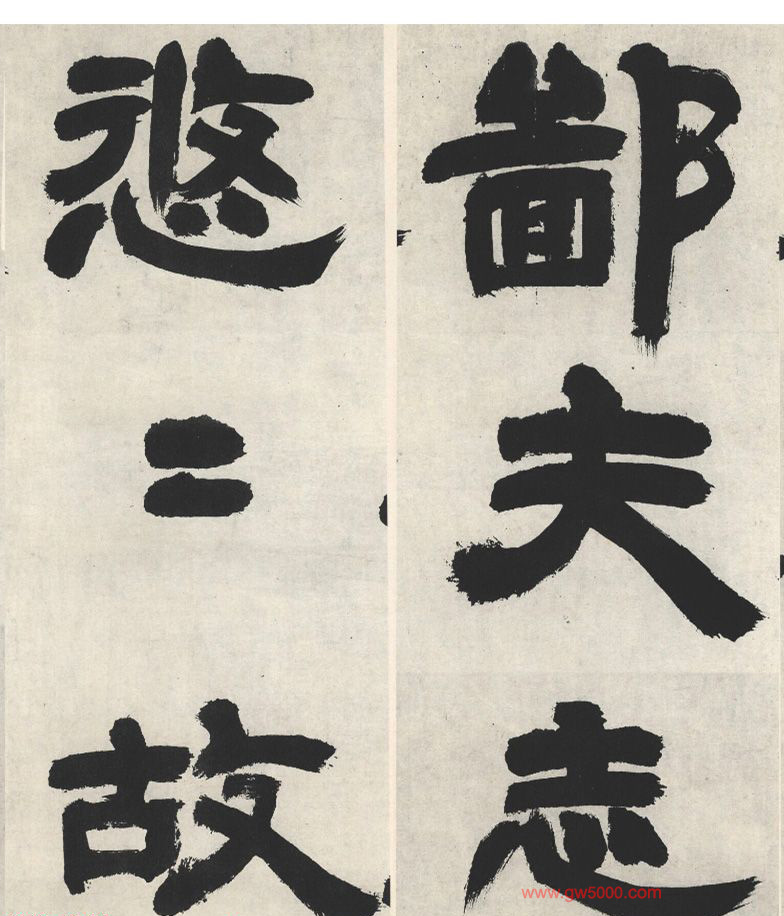 鄙夫志
悠〻故
www.gw5000.com